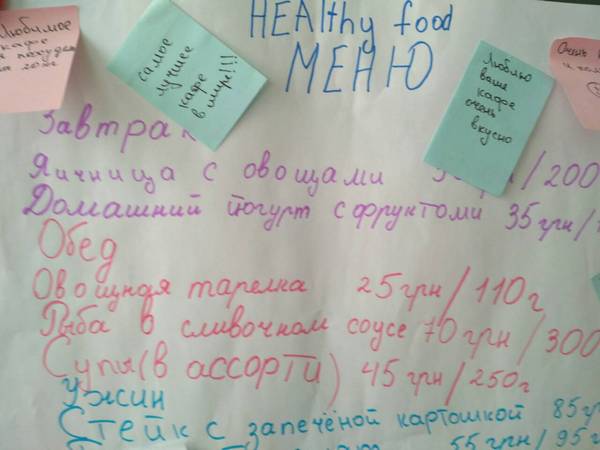 HEAlthy food
МЕНЮ
Любимое
кафе
самое
лучшее
кафе
в мире!!!
Люблю
ваше
кафе
очень
вкусно
Очень
Завтрак
Яичница с овощами /200
Домашний йогурт с фруктоми 35грн/
Обед
Овощная тарелка 25грн/110г
Рыба в сливочном соусе 70грн/300
Супы(в ассорти) 45грн/250г
Ужин
Стейк с запечёной картошкой 85г
55грн/95г